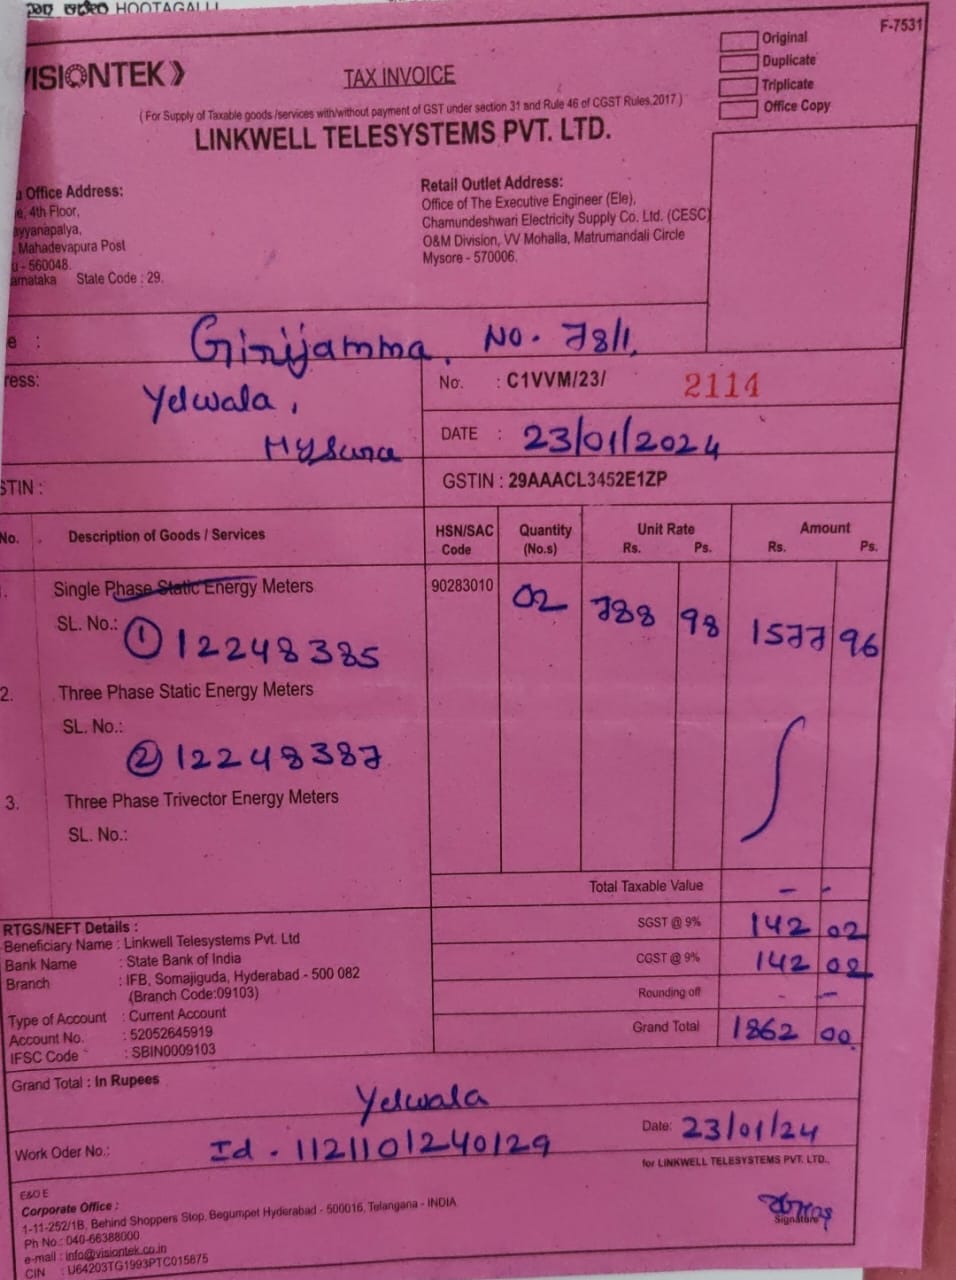 HOOTAGALLI
F-7531
VISIONTEK
TAX INVOICE
Original
Duplicate
Triplicate
Office Copy
( For Supply of Taxable goods /services with/without payment of GST under section 31 and Rule 46 of CGST Rules,2017 )
LINKWELL TELESYSTEMS PVT. LTD.
Office Address:
4th Floor,
ayyanapalya,
Mahadevapura Post
- 560048.
arnataka State Code : 29.
Retail Outlet Address:
Office of The Executive Engineer (Ele),
Chamundeshwari Electricity Supply Co. Ltd. (CESC)
O&M Division, VV Mohalla, Matrumandali Circle
Mysore - 570006.
e : Girijamma, No. 78/1,
ress: Yelwala,
Mysuru
No. : C1VVM/23/ 2114
DATE : 23/01/2024
STIN :
GSTIN : 29AAACL3452E1ZP
No. Description of Goods / Services HSN/SAC Code Quantity (No.s) Unit Rate Rs. Ps. Amount Rs. Ps.
Single Phase Static Energy Meters 90283010 02 788 98 1577 96
SL. No.: ① 12248385
2. Three Phase Static Energy Meters
SL. No.:
② 12248387
3. Three Phase Trivector Energy Meters
SL. No.:
Total Taxable Value - -
SGST @ 9% 142 02
CGST @ 9% 142 02
Rounding off - -
Grand Total 1862 00
RTGS/NEFT Details :
Beneficiary Name : Linkwell Telesystems Pvt. Ltd
Bank Name : State Bank of India
Branch : IFB, Somajiguda, Hyderabad - 500 082
(Branch Code:09103)
Type of Account : Current Account
Account No. : 52052645919
IFSC Code : SBIN0009103
Grand Total : In Rupees
Yelwala
Work Oder No.: Id - 1121101240129
Date: 23/01/24
for LINKWELL TELESYSTEMS PVT. LTD.,
E&O E
Corporate Office :
1-11-252/1B, Behind Shoppers Stop, Begumpet Hyderabad - 500016, Telangana - INDIA
Ph No : 040-66388000
e-mail : info@visiontek.co.in
CIN : U64203TG1993PTC015875
Signature